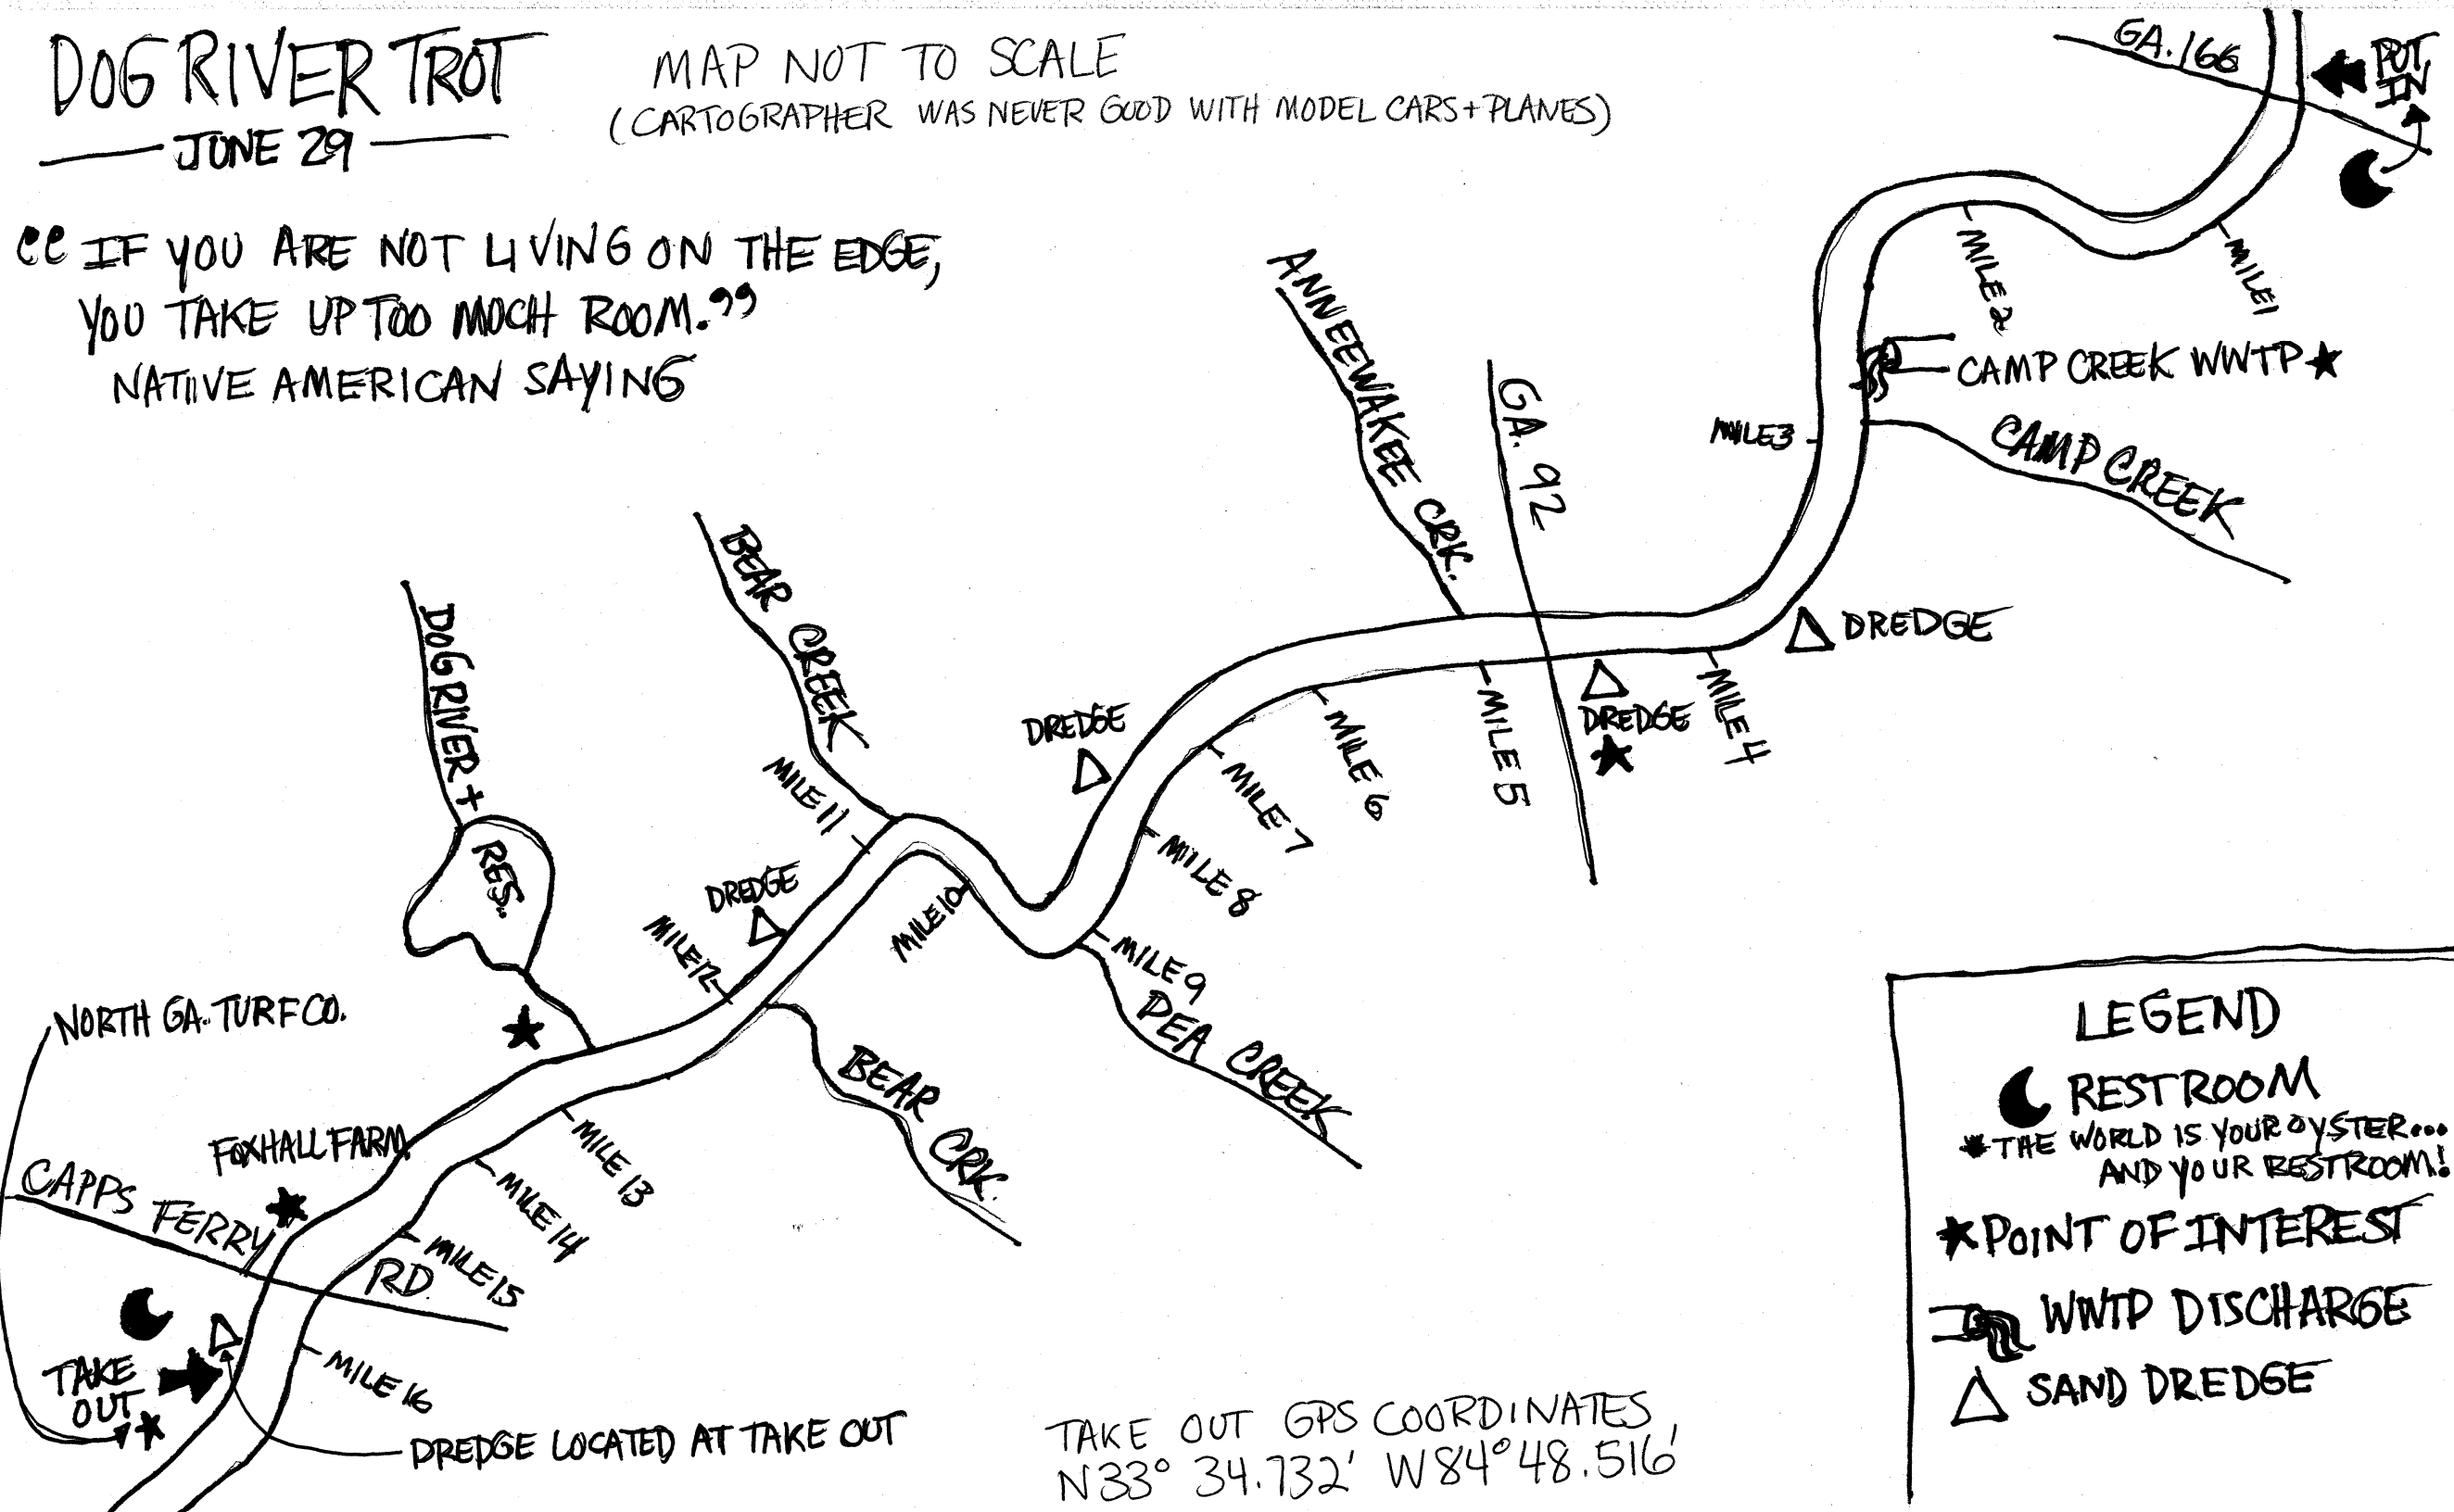 DOG RIVER TROT
JUNE 29
MAP NOT TO SCALE
(CARTOGRAPHER WAS NEVER GOOD WITH MODEL CARS + PLANES)
"IF YOU ARE NOT LIVING ON THE EDGE,
YOU TAKE UP TOO MUCH ROOM."
NATIVE AMERICAN SAYING
GA. 166
PUT
IN
MILE 1
MILE 2
CAMP CREEK WWTP
MILE 3
CAMP CREEK
ANNEEWAKEE CRK.
GA. 92
DREDGE
DREDGE
MILE 4
MILE 5
MILE 6
MILE 7
DREDGE
MILE 8
MILE 9
PEA CREEK
BEAR CREEK
MILE 10
MILE 11
DREDGE
MILE 12
BEAR CRK.
DOG RIVER +
RES.
NORTH GA. TURF CO.
FOXHALL FARM
MILE 13
MILE 14
MILE 15
CAPPS FERRY RD.
MILE 16
TAKE
OUT
DREDGE LOCATED AT TAKE OUT
TAKE OUT GPS COORDINATES
N33° 34.732' W84° 48.516'
LEGEND
RESTROOM
*THE WORLD IS YOUR OYSTER...
AND YOUR RESTROOM!
POINT OF INTEREST
WWTP DISCHARGE
SAND DREDGE